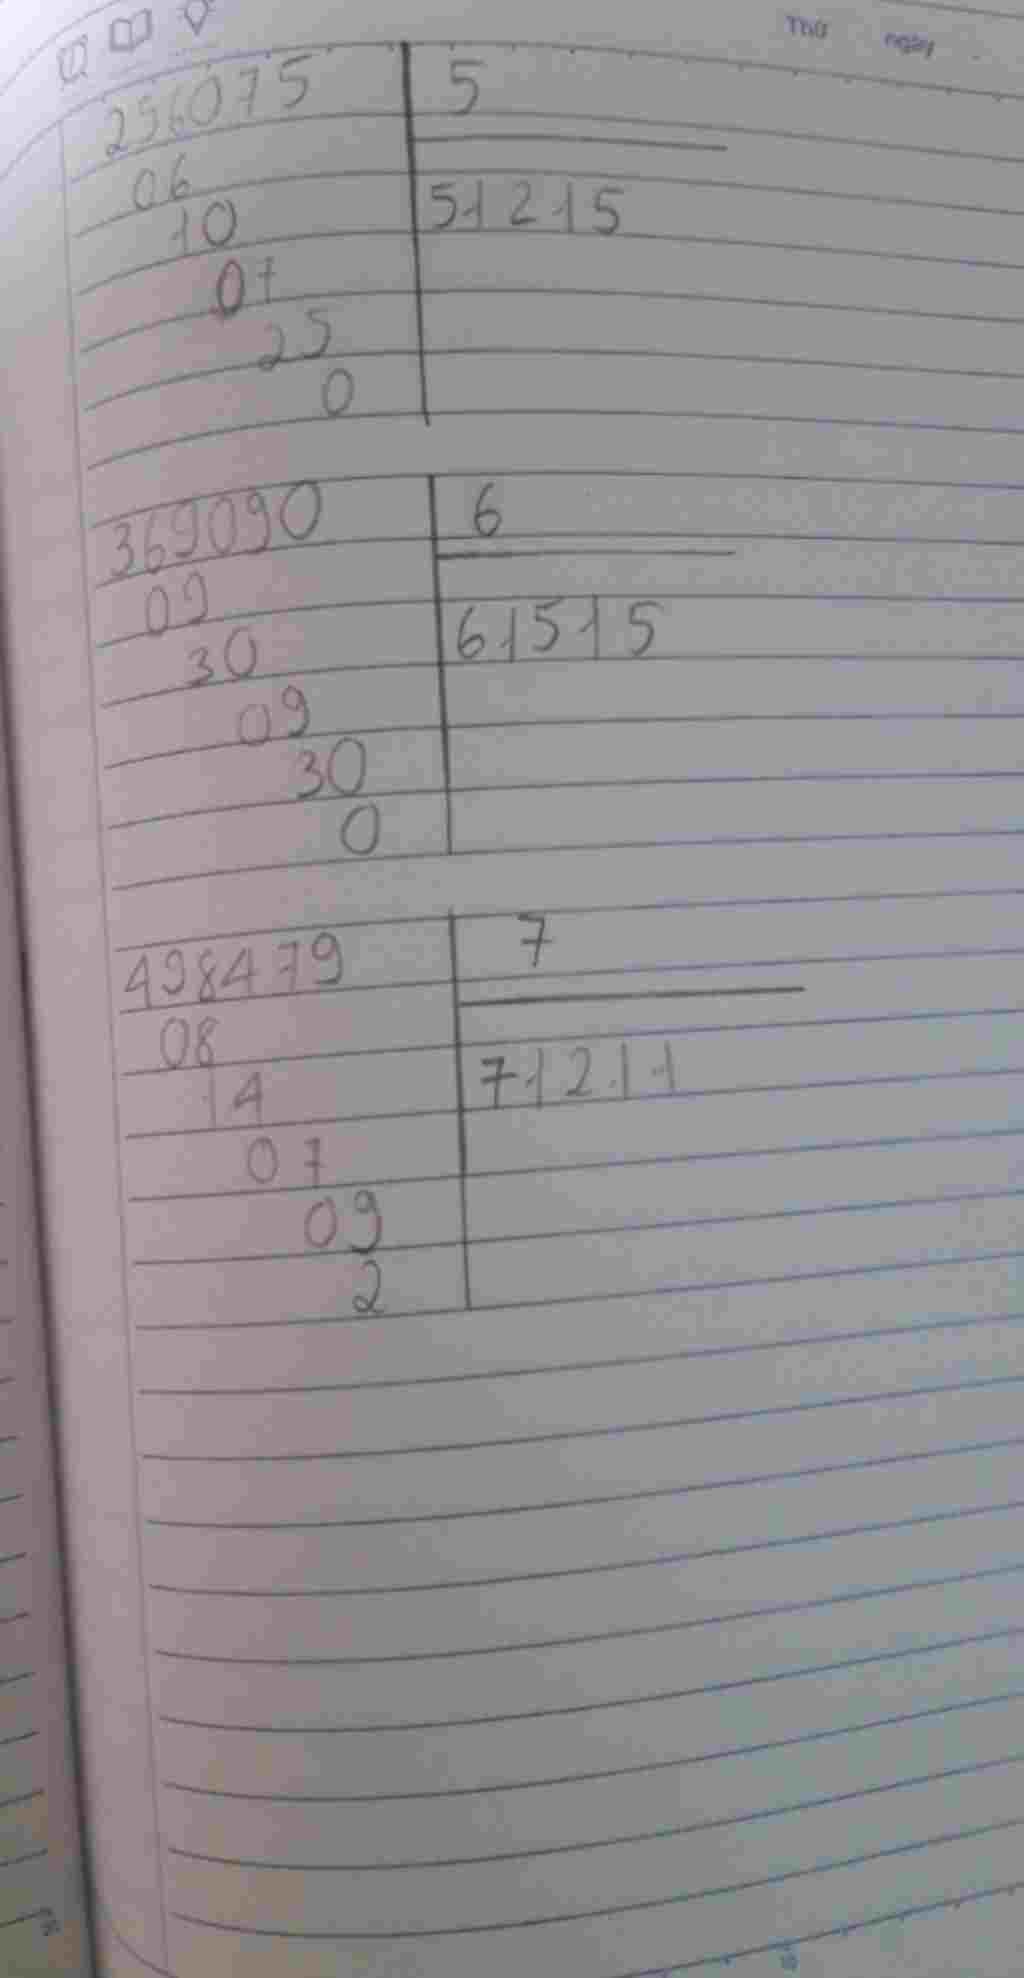 Thứ ngày
256075 5
06
10 51215
07
25
0
369090 6
09
30 61515
09
30
0
498479 7
08
14 71211
07
09
2